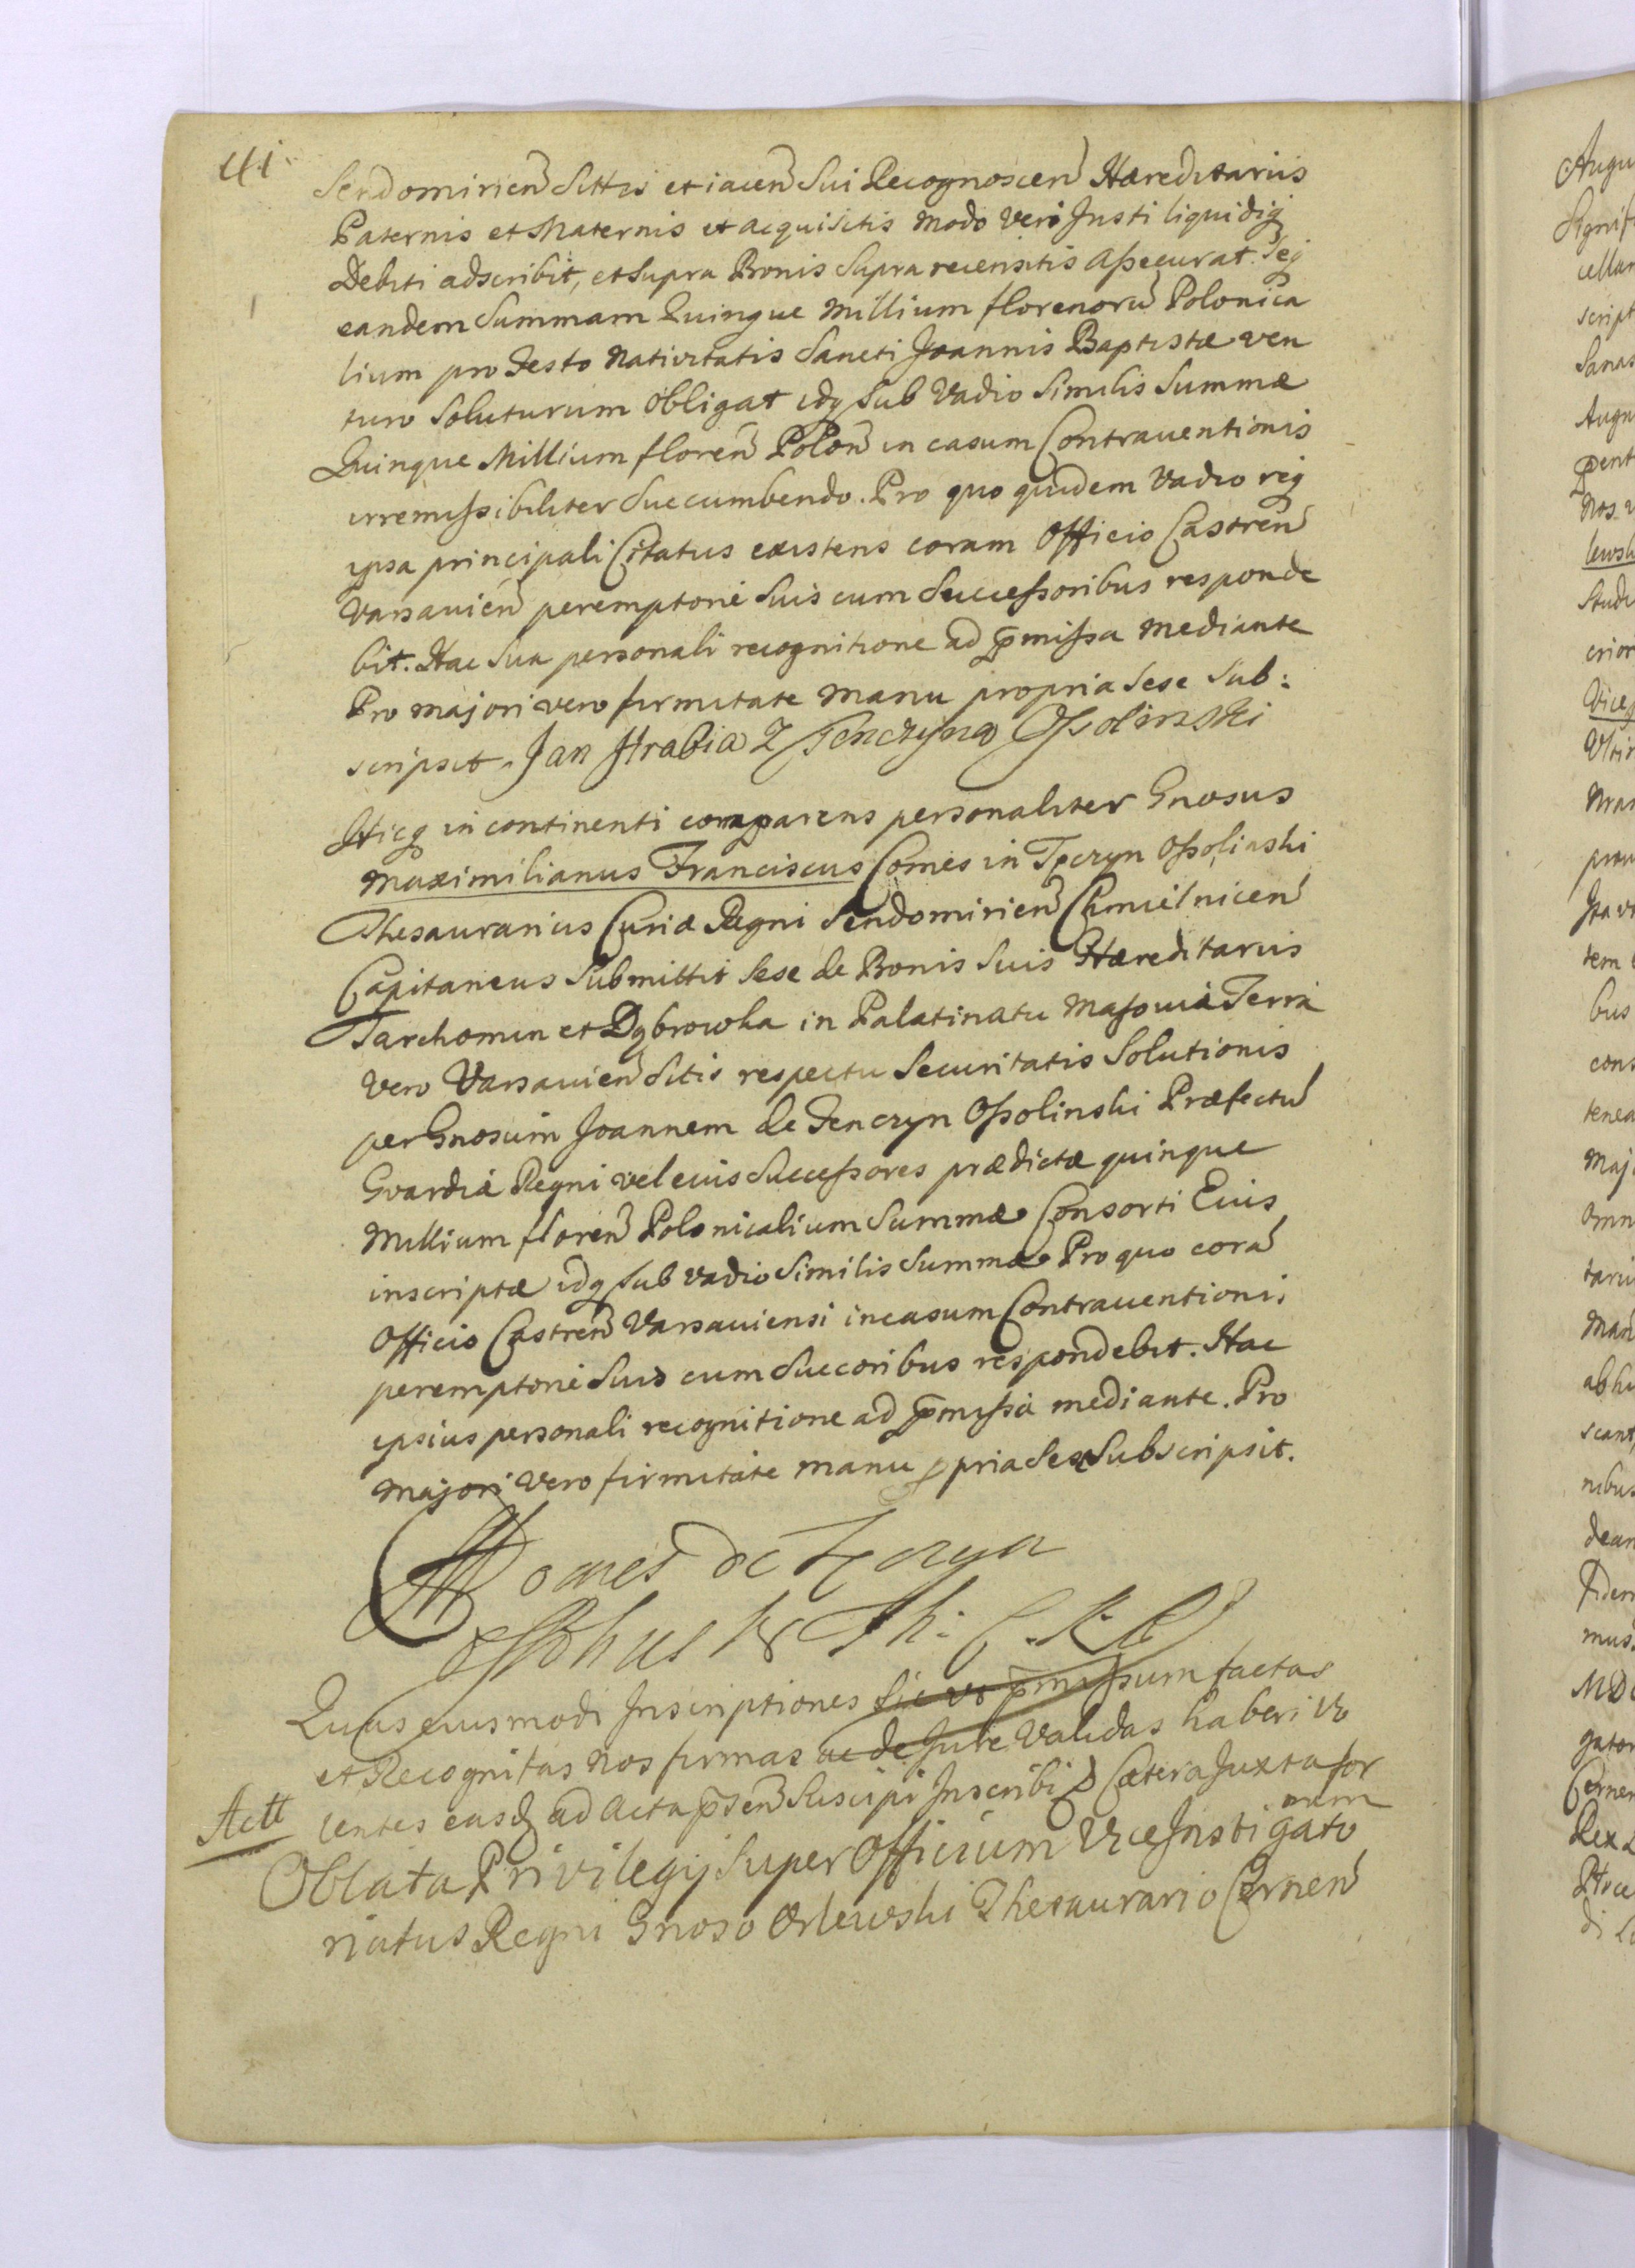 41
Sendomirien̄ Sittis et iacen̄ Sui Recognoscen̄ Hæreditariis
Paternis et Maternis et acquisitis modo veri Justi liquidiq
Debiti adscribit, et supra Bonis supra recensitis assecurat. Seq
eandem Summam Quinque Millium florenorū Polonica
lium pro Festo Nativitatis Sancti Joannis Baptistæ ven
turo Soluturum obligat idq sub Vadio Similis Summæ
Quinque Millium floren̄ Polon̄ in casum Contrauentionis
irremissibiliter Succumbendo. Pro quo quidem Vadio req
ipsa principali Citatus existens coram Officio Castren̄
Varsauien̄ peremptorie Suis cum Successoribus responde
bit. Hac Sua personali recognitione ad p̄missa mediante
Pro majori vero firmitate manu propria Sese Sub:
scripsit. Jan Hrabia z Tenczyna Ossolinski
Hicq in continenti comparens personaliter Gnosus
Maximilianus Franciscus Comes in Tęczyn Ossolinski
Thesaurarius Curiæ Regni Sendomirien̄ Chmielnicen̄
Capitaneus Submittit Sese de Bonis Suis Hæreditariis
Tarchomin et Dąbrowka in Palatinatu Masouiæ Terra
vero Varsauien̄ Sitis respectu Securitatis Solutionis
per Gnosum Joannem de Tenczyn Ossolinski Præfectū
Gvardiæ Regni vel eius Successores prædictæ quinque
Millium floren̄ Polonicalium Summæ Consorti Eius
inscriptæ idq sub vadio Similis Summæ. Pro quo corā
Officio Castren̄ Varsauiensi in casum Contrauentionis
peremptorie Suis cum Succoribus respondebit. Hac
ipsius personali recognitione ad p̄missa mediante. Pro
majori vero firmitate manu ppria Sese Subscripsit.
Comes de Tęczyn
Th: C. R.
Quas eiusmodi Inscriptiones sic ut p̄missum factas
et Recognitas Nos firmas ac de Jure Validas haberi vo
lentes easq ad Acta p̄sen̄ Suscipi Inscribi & Cætera Juxta for
mam
Actt
Oblata Privilegij Super Officium ViceInstigato
riatus Regni Gnoso Orlewski Thesaurario Cernen̄